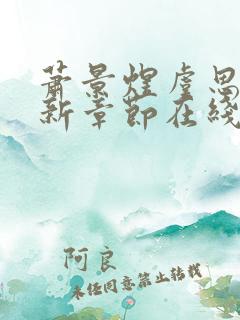 萧景煜虞思
新章節在綫
阿良
未经同意禁止转载